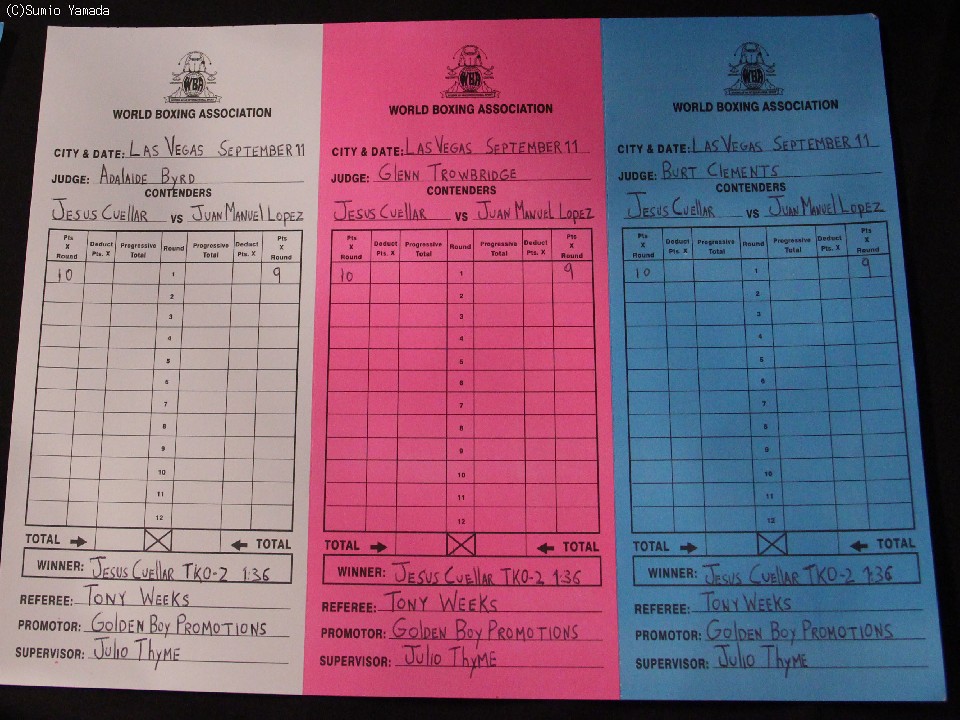 (C)Sumio Yamada
WBA
WORLD BOXING ASSOCIATION
CITY & DATE: LAS VEGAS SEPTEMBER 11
JUDGE: ADALAIDE BYRD
CONTENDERS
JESUS CUELLAR VS JUAN MANUEL LOPEZ
Pts X Round Deduct Pts. X Progressive Total Round Progressive Total Deduct Pts. X Pts X Round
10 1 9
2
3
4
5
6
7
8
9
10
11
12
TOTAL TOTAL
WINNER: JESUS CUELLAR TKO-2 1:36
REFEREE: TONY WEEKS
PROMOTOR: GOLDEN BOY PROMOTIONS
SUPERVISOR: JULIO THYME
WBA
WORLD BOXING ASSOCIATION
CITY & DATE: LAS VEGAS SEPTEMBER 11
JUDGE: GLENN TROWBRIDGE
CONTENDERS
JESUS CUELLAR VS JUAN MANUEL LOPEZ
Pts X Round Deduct Pts. X Progressive Total Round Progressive Total Deduct Pts. X Pts X Round
10 1 9
2
3
4
5
6
7
8
9
10
11
12
TOTAL TOTAL
WINNER: JESUS CUELLAR TKO-2 1:36
REFEREE: TONY WEEKS
PROMOTOR: GOLDEN BOY PROMOTIONS
SUPERVISOR: JULIO THYME
WBA
WORLD BOXING ASSOCIATION
CITY & DATE: LAS VEGAS SEPTEMBER 11
JUDGE: BURT CLEMENTS
CONTENDERS
JESUS CUELLAR VS JUAN MANUEL LOPEZ
Pts X Round Deduct Pts. X Progressive Total Round Progressive Total Deduct Pts. X Pts X Round
10 1 9
2
3
4
5
6
7
8
9
10
11
12
TOTAL TOTAL
WINNER: JESUS CUELLAR TKO-2 1:36
REFEREE: TONY WEEKS
PROMOTOR: GOLDEN BOY PROMOTIONS
SUPERVISOR: JULIO THYME